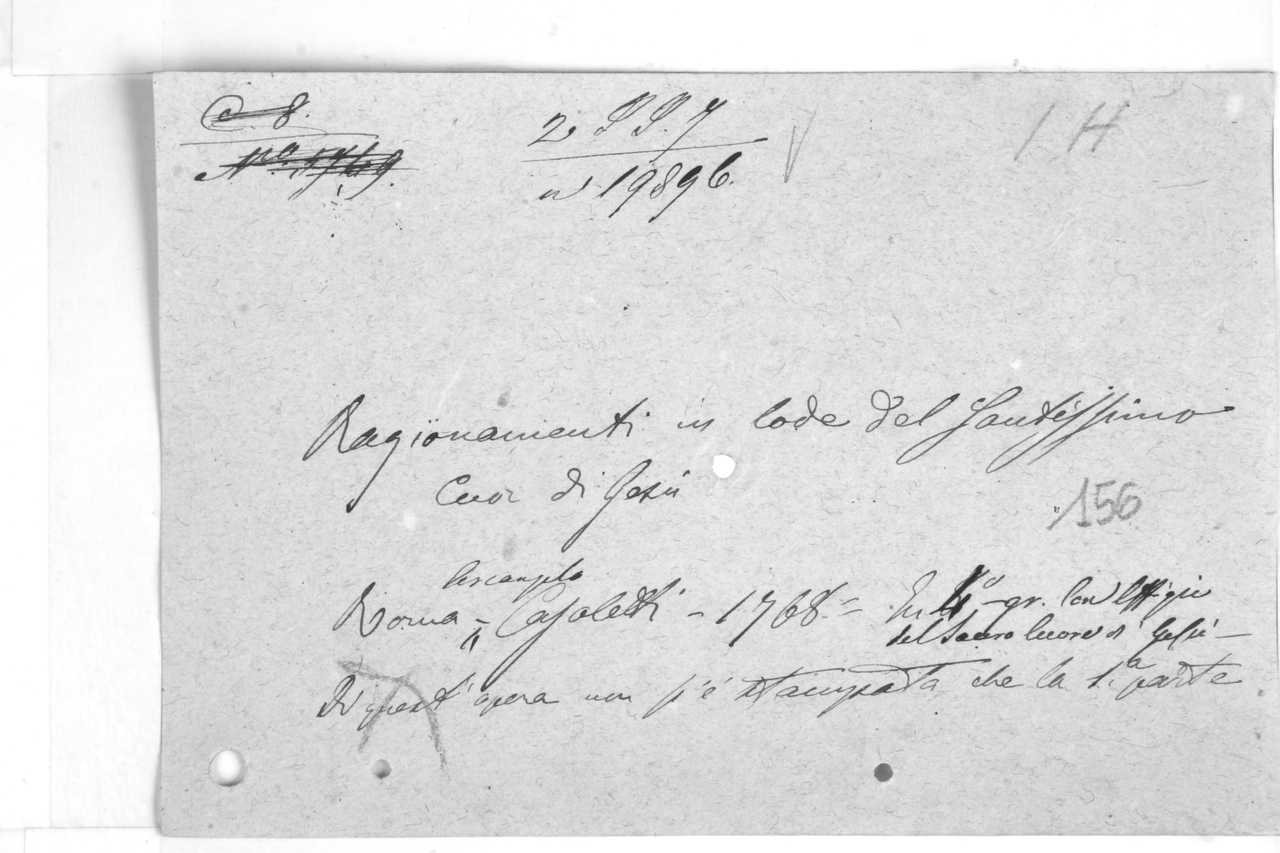 C. 8.
N.o 1769.
2. P P. 7
n 19896.
1 H
Ragionamenti in lode del Santissimo
Cuor di Gesù
156
Arcangelo
Roma = Casaletti - 1768 = In 4° gr. con Effigie
del Sacro Cuore di Gesù -
Di quest'opera non s'è stampata che la 1.a parte